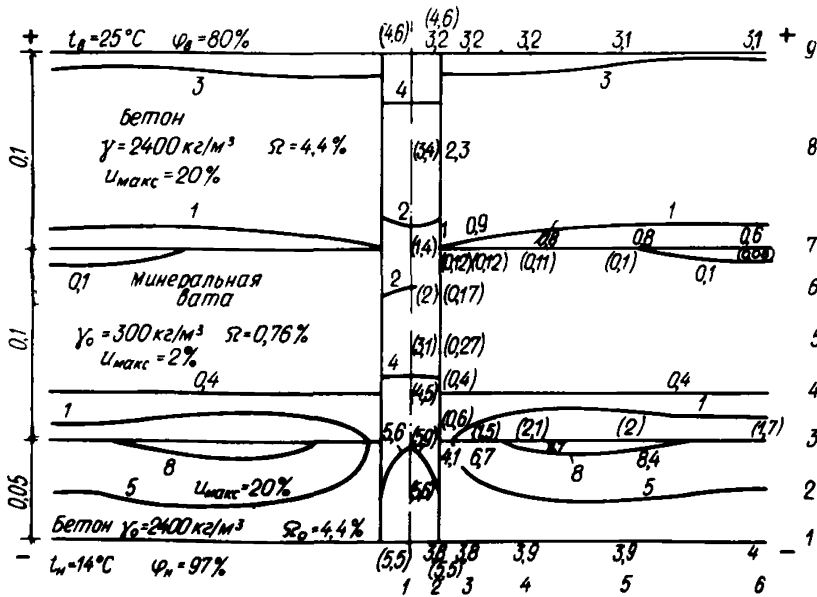 (4,6)
+ tв=25°C φв=80% (4,6) 3,2 3,2 3,2 3,1 3,1 + 9
3 4 3
Бетон
γ=2400 кг/м³ Ω=4,4% (3,4) 2,3 8
Uмакс=20%
0,1
1 2 1 0,9 1
(1,4) 0,8 0,8 0,6 7
0,1 (0,12) (0,12) (0,11) (0,1) 0,1
Минеральная
вата 2 (2) (0,17) 6
γо=300 кг/м³ Ω=0,76% (3,1) (0,27) 5
Uмакс=2%
0,1
4 (0,4)
0,4 (4,5) 0,4 4
1 (0,6) 1
5,6 (5,9) (1,5) (2,1) (2) (1,7) 3
8 4,1 6,7 8 8,4
5 Uмакс=20% (5,6) 5 2
0,05
Бетон γо=2400 кг/м³ Ωо=4,4% 1
− tн=14°C φн=97% (5,5) 3,8 3,8 3,9 3,9 4 −
(5,5)
1 2 3 4 5 6